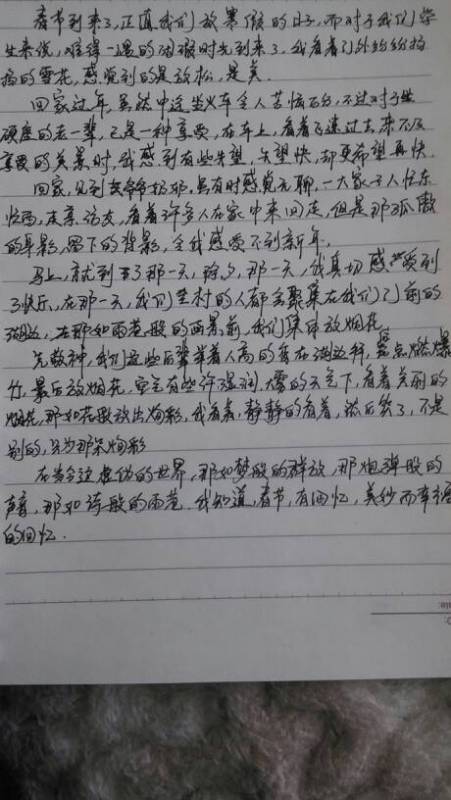 春节到来了,正值我们放寒假的日子,而对于我们学
生来说,难得一遇的闲暇时光到来了,我看着门外纷纷扬
扬的雪花,感觉到的是放松,是
回家过年,虽然中途坐火车令人苦恼万分,不过对于坐
硬座的老一辈,已是一种享受,在车上,看着飞速过去,来不及
享受的美景时,我感到有些失望,失望快,却更希望再快.
回家,见到爷爷奶奶,虽有时感觉无聊,一大家子人忙东
忙西,走亲访友,看着许多人在家中来回走,但是那孤傲
的身影,留下的背影,令我感受不到新年.
马上,就到了那一天,除夕,那一天,我真切感受到
了快乐,在那一天,我们全村的人都会聚集在我们门前的
湖边,在那如雨巷般的雨景前,我们集体放烟花
先敬神,我们这些后辈举着人高的香在湖边拜,点燃爆
竹,最后放烟花,空气有些许湿润,雪的天气下,看着美丽的
烟花,那如花般放出绚彩,我看着,静静的看着,然后笑了,不是
别的,只为那朵绚彩
在旁边虚伪的世界,那如梦般的群放,那炮弹般的
声音,那如诗般的雨巷.我知道,春节,有回忆,美妙而幸福
的回忆.